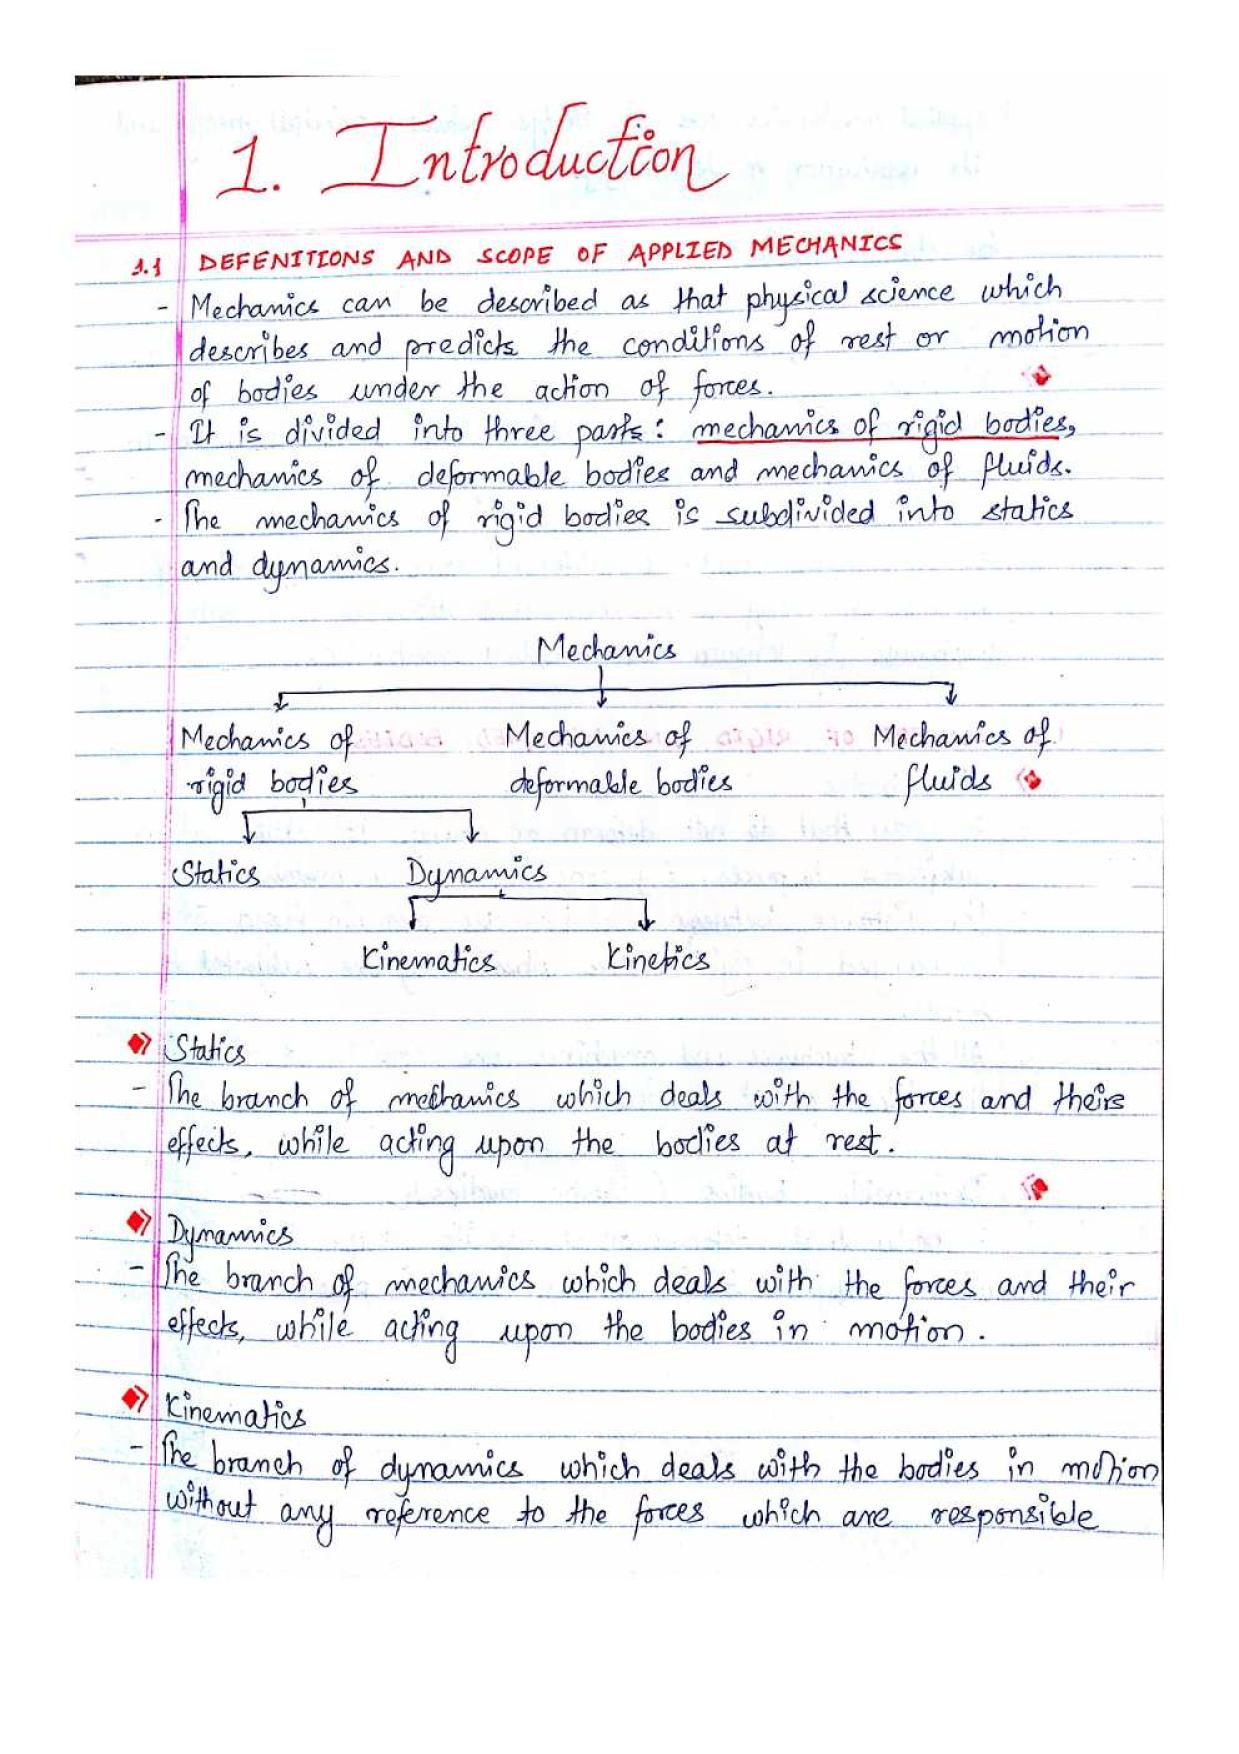 1. Introduction
1.1 DEFENITIONS AND SCOPE OF APPLIED MECHANICS
- Mechanics can be described as that physical science which
describes and predicts the conditions of rest or motion
of bodies under the action of forces.
- It is divided into three parts: mechanics of rigid bodies,
mechanics of deformable bodies and mechanics of fluids.
- The mechanics of rigid bodies is subdivided into statics
and dynamics.
Mechanics
Mechanics of rigid bodies
Mechanics of deformable bodies
Mechanics of fluids
Statics
Dynamics
Kinematics
Kinetics
Statics
- The branch of mechanics which deals with the forces and theirs
effects, while acting upon the bodies at rest.
Dynamics
- The branch of mechanics which deals with the forces and their
effects, while acting upon the bodies in motion.
Kinematics
- The branch of dynamics which deals with the bodies in motion
without any reference to the forces which are responsible